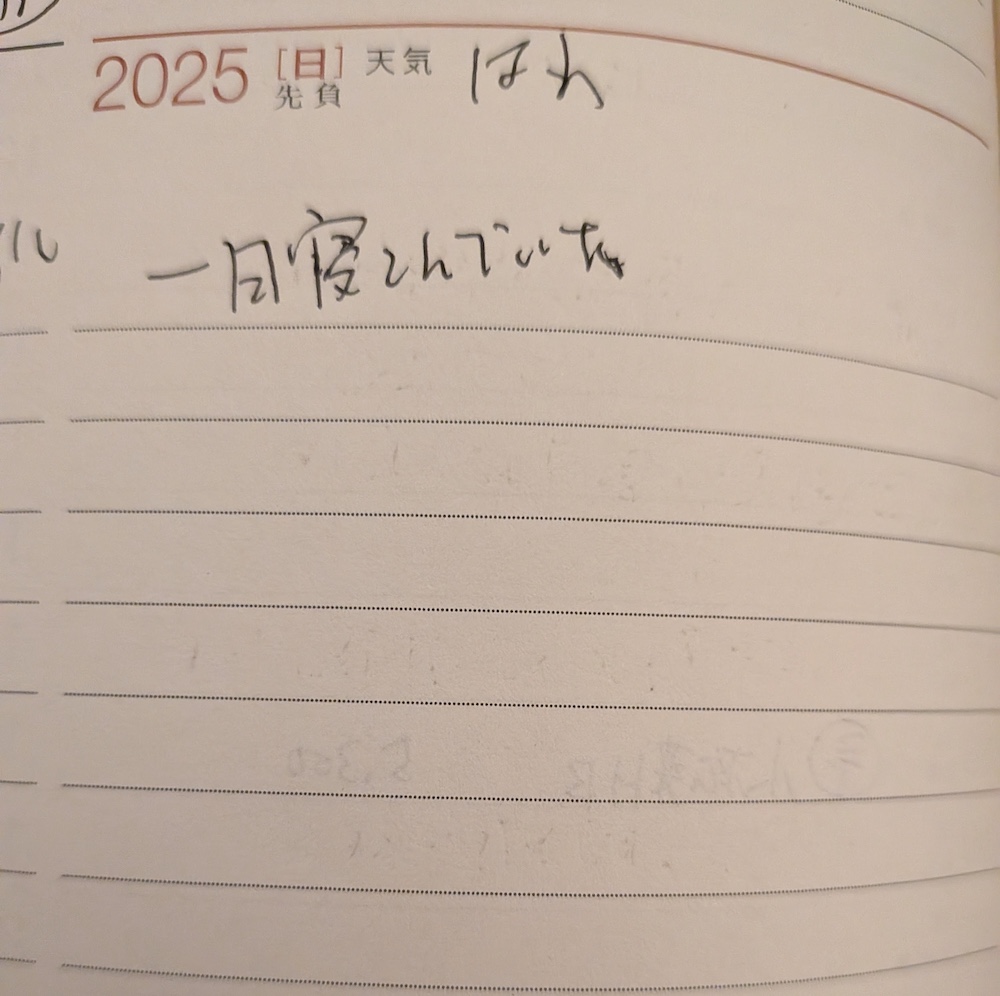 2025 [日] 天気 はれ
先負
一日寝こんでいた